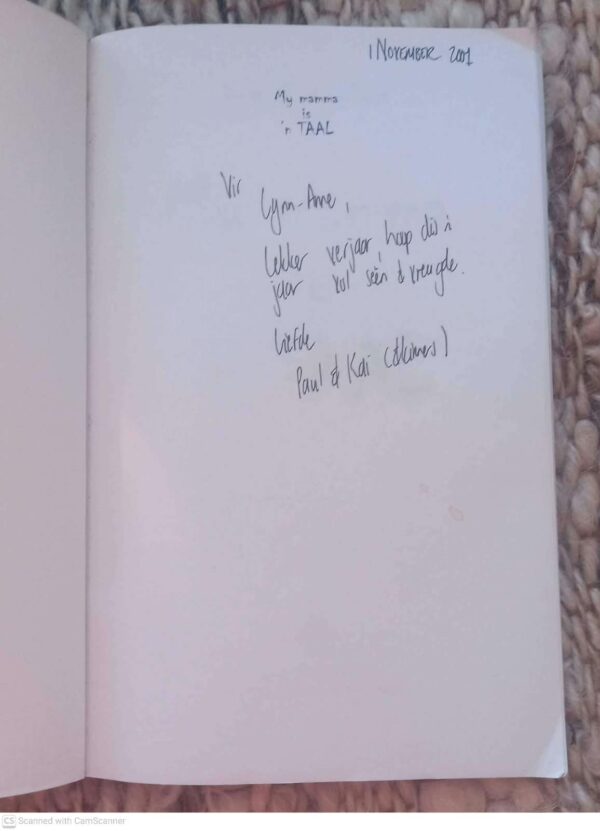 1 NOVEMBER 2001
My mamma
is
'n TAAL
Vir
Lynn-Anne,
Lekker verjaar, hoop dis 'n
jaar vol seën & vreugde.
Liefde
Paul & Kai
CS Scanned with CamScanner